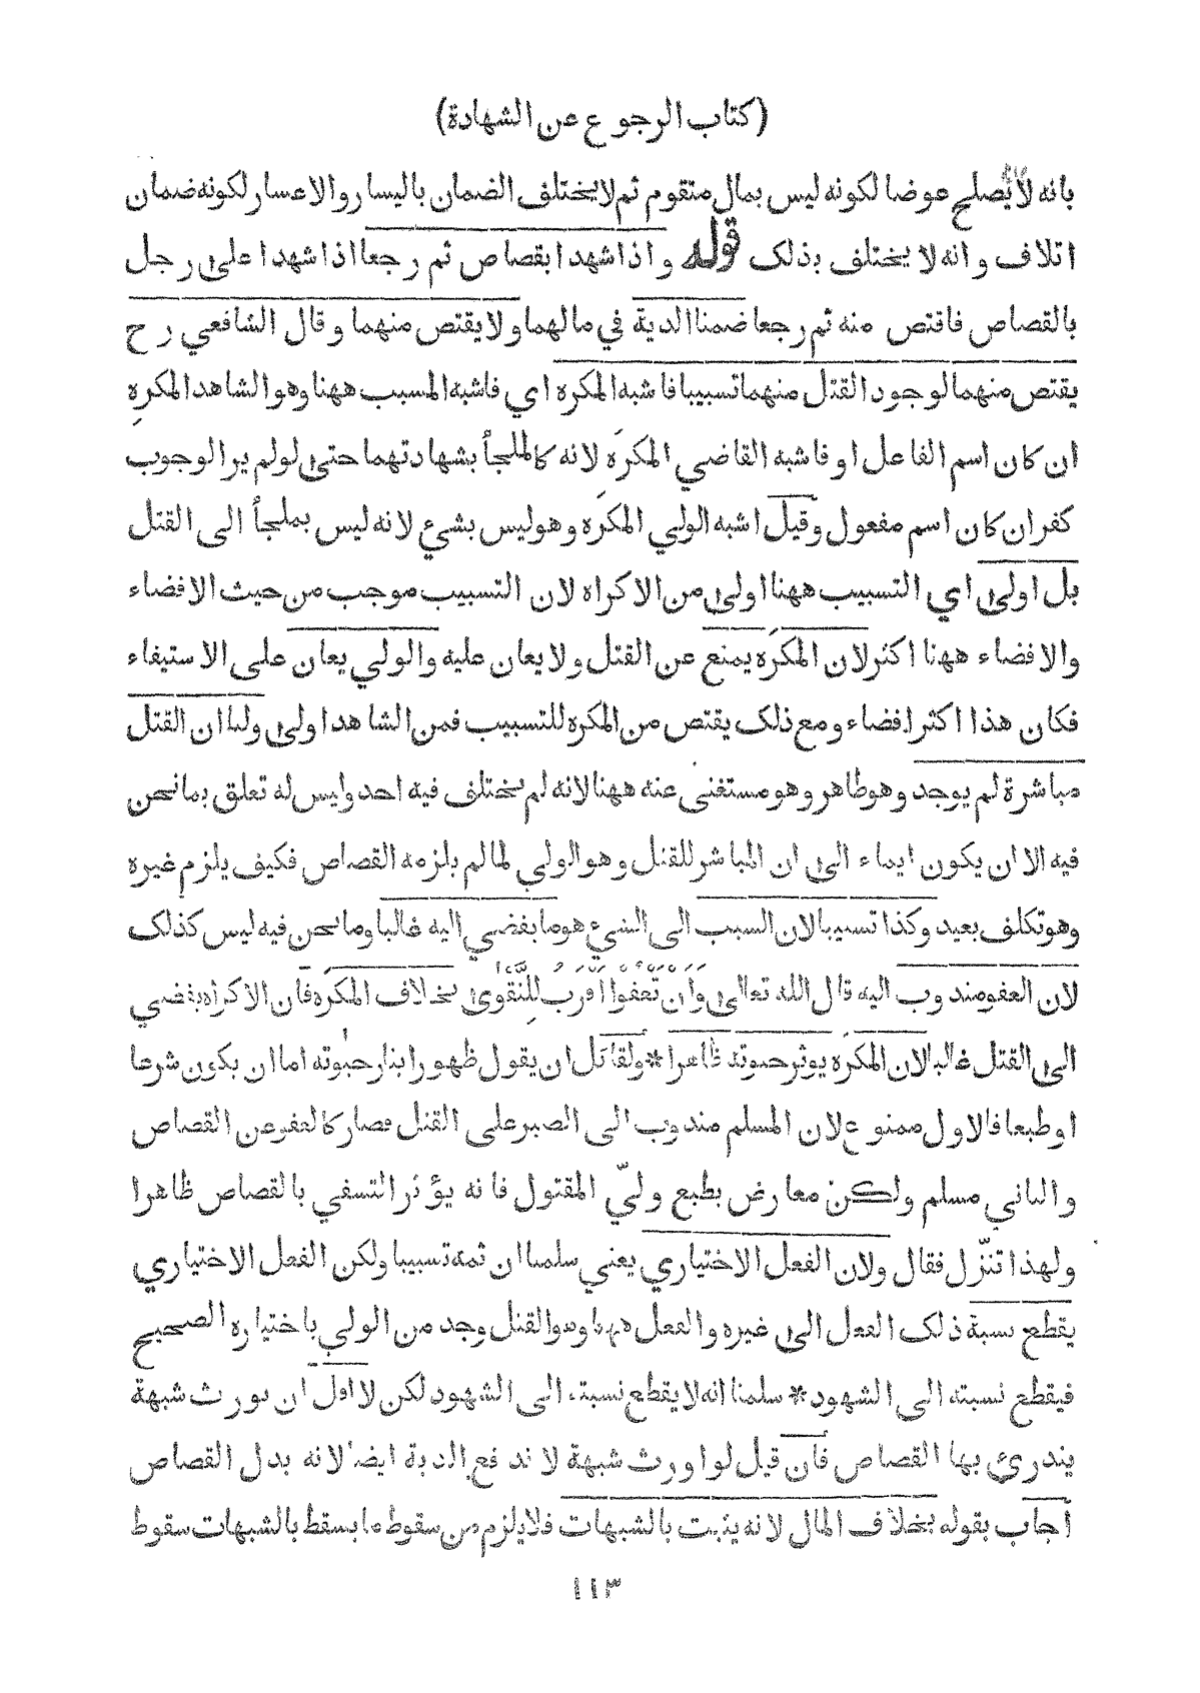 (كتاب الرجوع عن الشهادة)
بانه لا يصلح عوضا لكونه ليس بمال متقوم ثم لا يختلف الضمان باليسار والاعسار لكونه ضمان
اتلاف وانه لا يختلف بذلك قوله واذا شهدا بقصاص ثم رجعا اذا شهدا على رجل
بالقصاص فاقتص منه ثم رجعا ضمنا الدية في مالهما ولا يقتص منهما وقال الشافعي رح
يقتص منهما لوجود القتل منهما تسبيبا فاشبه المكره اي فاشبه المسبب ههنا وهو الشاهد المكرِه
ان كان اسم الفاعل او فاشبه القاضي المكرَه لانه كالملجأ بشهادتهما حتى لو لم ير الوجوب
كفر ان كان اسم مفعول وقيل اشبه الولي المكرَه وهو ليس بشيء لانه ليس بملجأ الى القتل
بل اولى اي التسبيب ههنا اولى من الاكراه لان التسبيب موجب من حيث الافضاء
والافضاء ههنا اكثر لان المكرَه يمنع عن القتل ولا يعان عليه والولي يعان على الاستيفاء
فكان هذا اكثر افضاء ومع ذلك يقتص من المكره للتسبيب فمن الشاهد اولى ولنا ان القتل
مباشرة لم يوجد وهو ظاهر وهو مستغنى عنه ههنا لانه لم يختلف فيه احد وليس له تعلق بما نحن
فيه الا ان يكون ايماء الى ان المباشر للقتل وهو الولي لما لم يلزمه القصاص فكيف يلزم غيره
وهو تكلف بعيد وكذا تسبيبا لان السبب الى الشيء هو ما يفضي اليه غالبا وما نحن فيه ليس كذلك
لان العفو مندوب اليه قال الله تعالى وَاَنْ تَعْفُوْا اَقْرَبُ لِلتَّقْوٰى بخلاف المكرَه فان الاكراه يفضي
الى القتل غالبا لان المكرَه يوثر حيوته ظاهرا * ولقائل ان يقول ظهور ايثار حيوته اما ان يكون شرعا
او طبعا فالاول ممنوع لان المسلم مندوب الى الصبر على القتل فصار كالعفو عن القصاص
والثاني مسلم ولكن معارض بطبع وليّ المقتول فانه يؤثر التشفي بالقصاص ظاهرا
ولهذا تنزّل فقال ولان الفعل الاختياري يعني سلمنا ان ثمه تسبيبا ولكن الفعل الاختياري
يقطع نسبة ذلك الفعل الى غيره والفعل ههنا وهو القتل وجد من الولي باختياره الصحيح
فيقطع نسبته الى الشهود * سلمنا انه لا يقطع نسبته الى الشهود لكن لا اقل ان يورث شبهة
يندرئ بها القصاص فان قيل لو اورث شبهة لاندفع الدية ايضا لانه بدل القصاص
اجاب بقوله بخلاف المال لانه يثبت بالشبهات فلا يلزم من سقوط ما يسقط بالشبهات سقوط
١١٣